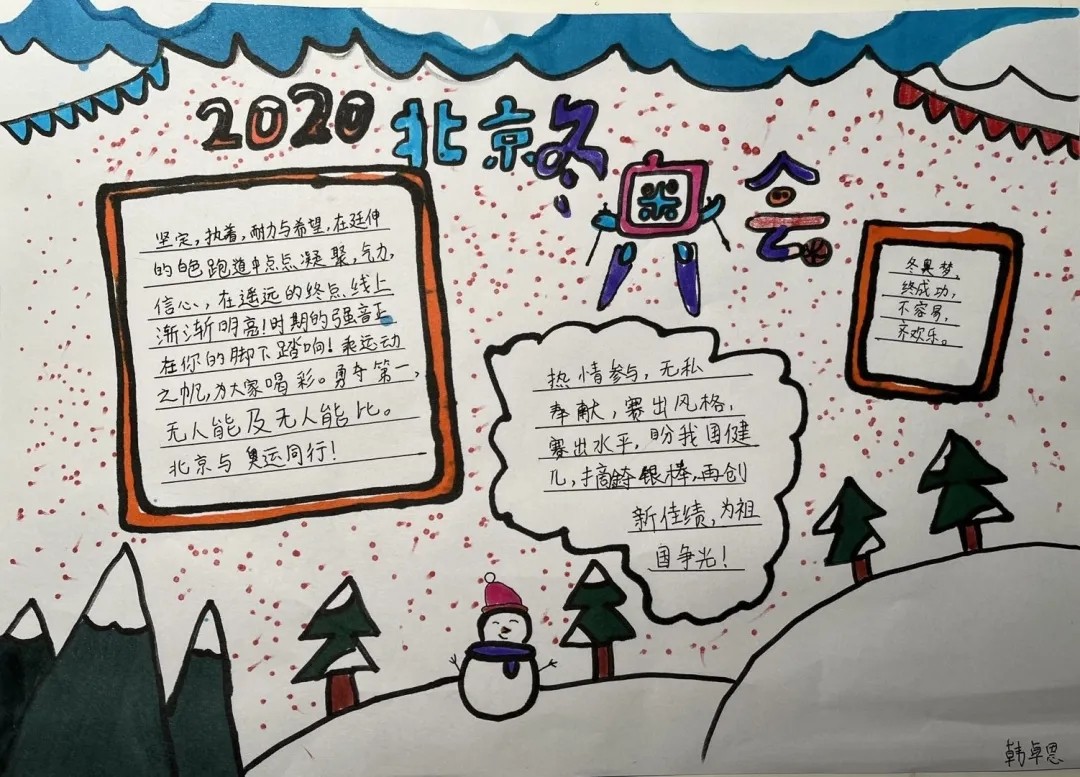 2020北京冬奥会
坚定,执着,耐力与希望,在延伸
的白色跑道中点点凝聚,气力,
信心、在遥远的终点线上
渐渐明亮!时期的强音正
在你的脚下踏响!乘运动
之帆,为大家喝彩。勇夺第一,
无人能及无人能比。
北京与奥运同行!
冬奥梦,
终成功,
不容易,
齐欢乐。
热情参与,无私
奉献,赛出风格,
赛出水平,盼我国健
儿,摘 银棒,再创
新佳绩,为祖
国争光!
韩卓恩